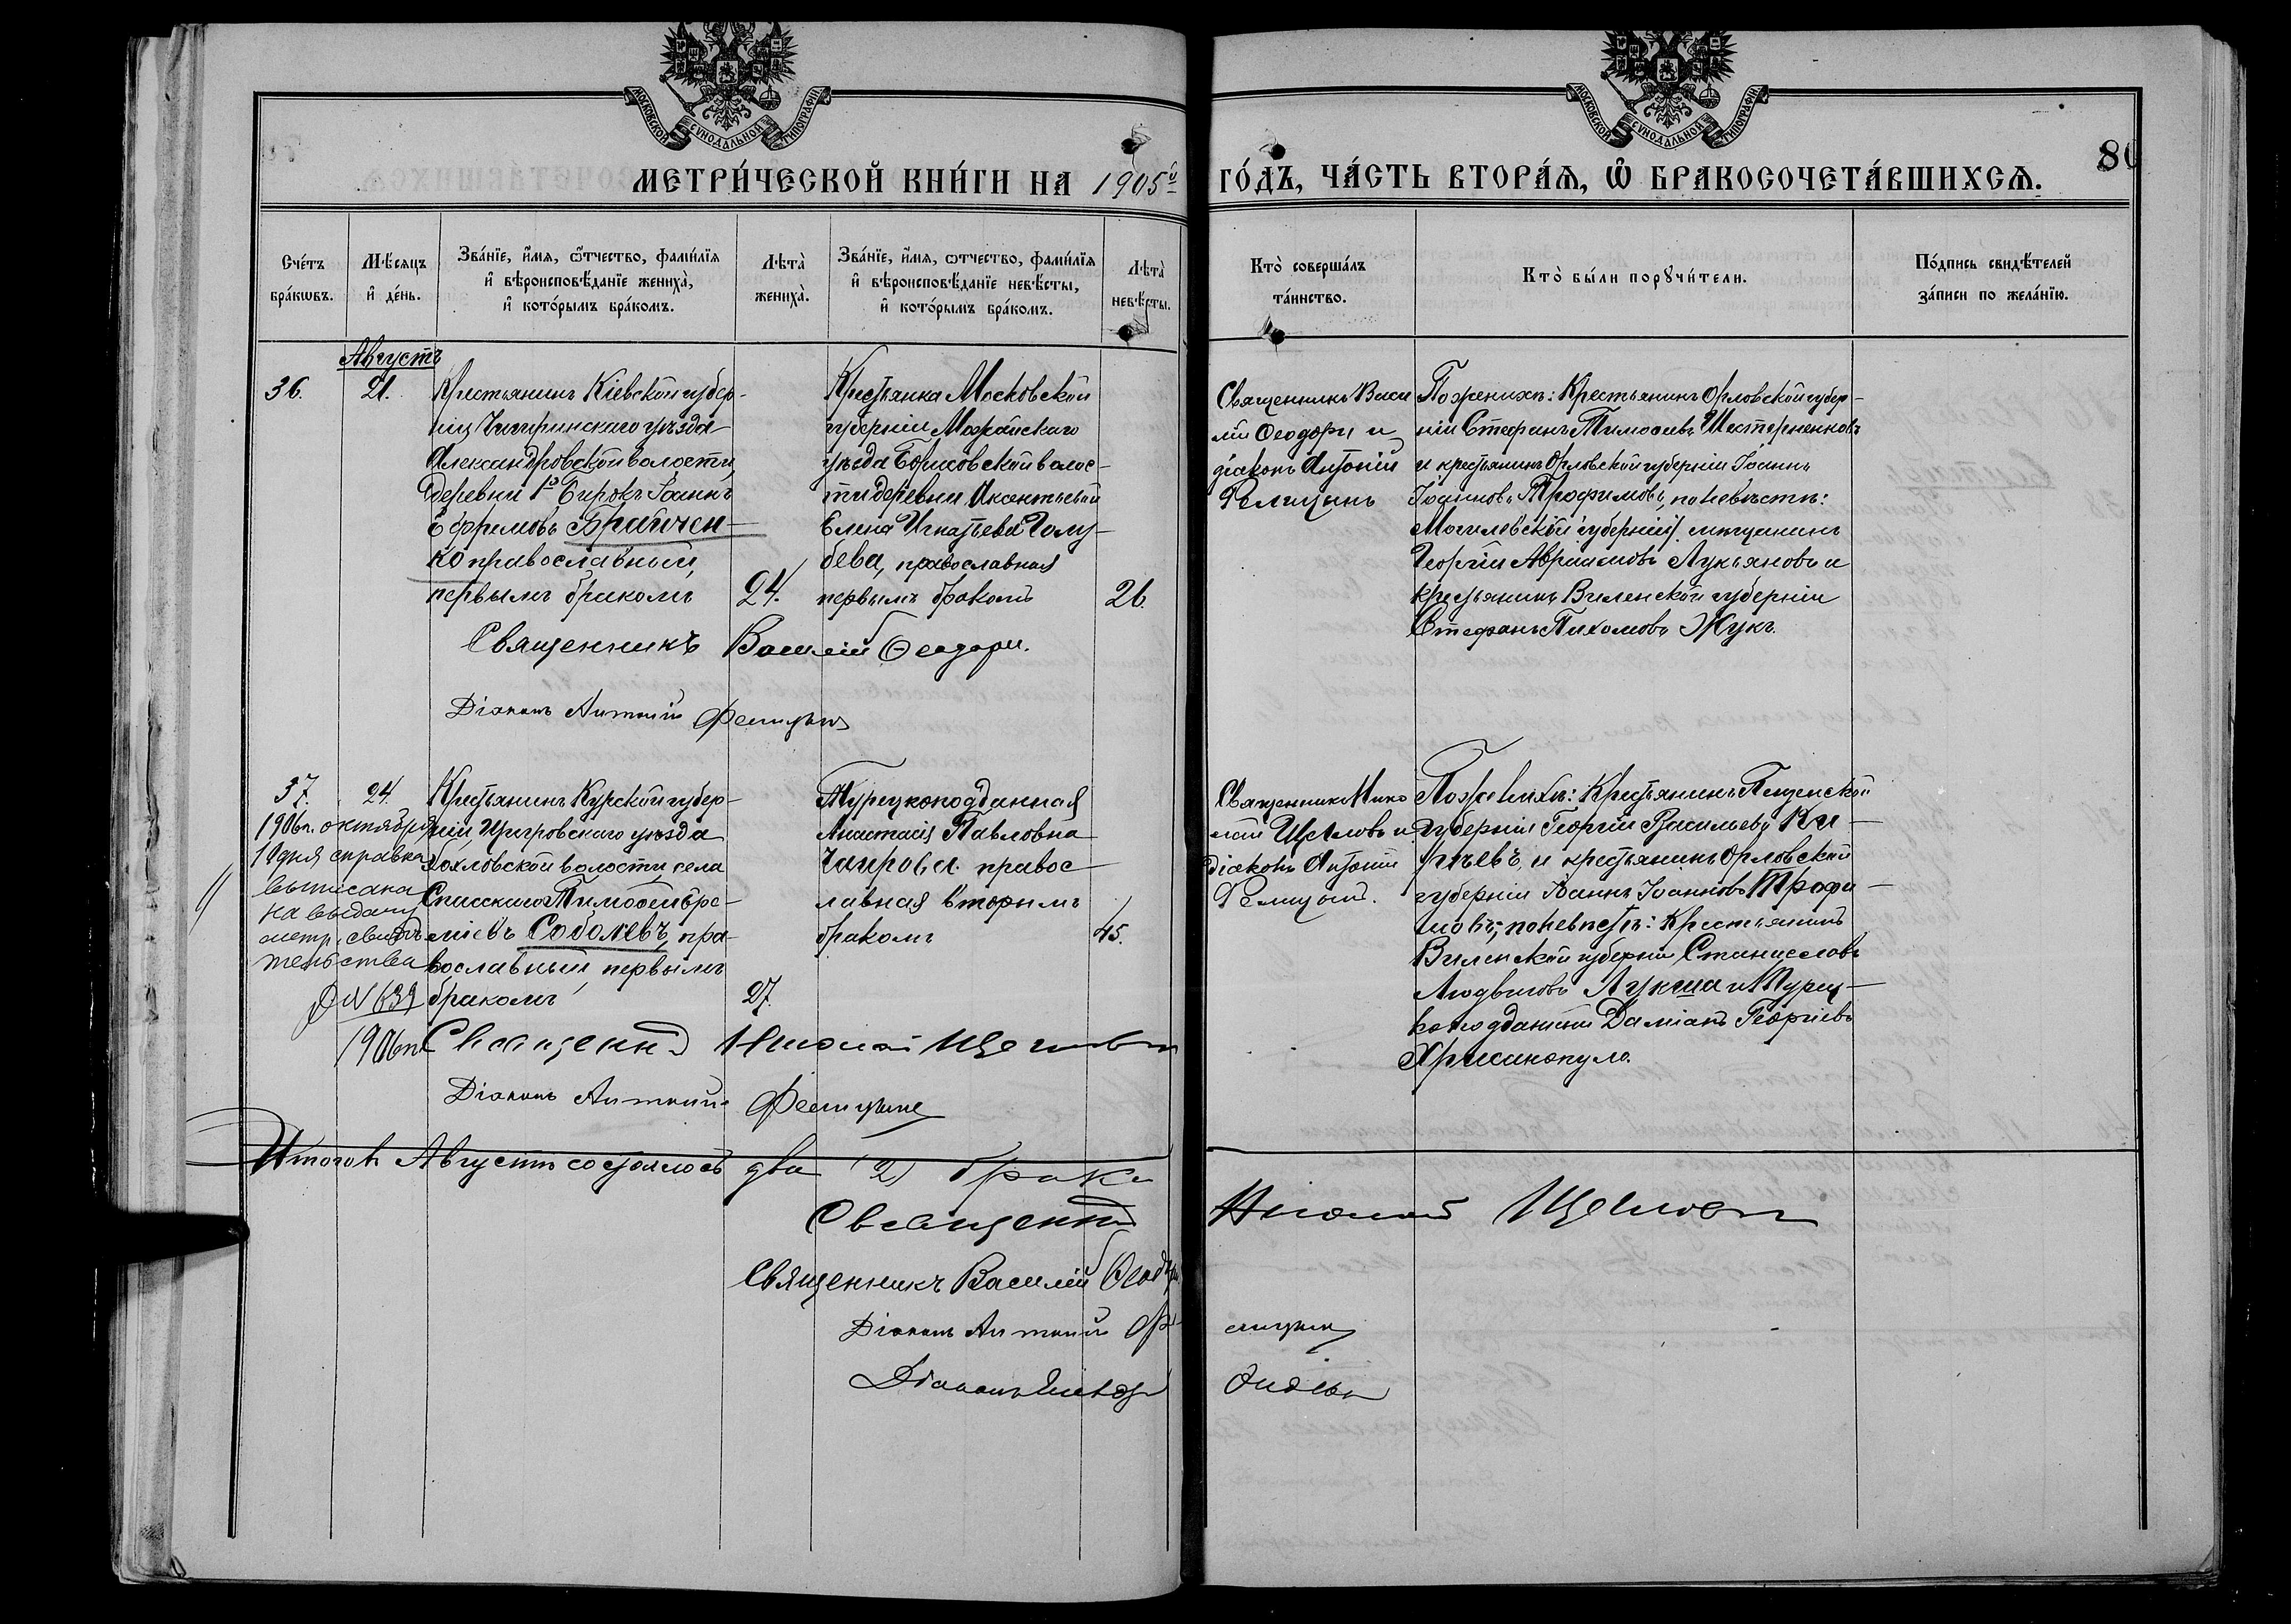 МОСКОВСКОЙ СУНОДАЛЬНОЙ ТИПОГРАФІИ
МОСКОВСКОЙ СУНОДАЛЬНОЙ ТИПОГРАФІИ
МЕТРИ́ЧЕСКОЙ КНИ́ГИ НА 1905й
ГО́ДЪ, ЧА́СТЬ ВТОРА́Ѧ, Ѽ БРАКОСОЧЕТА́ВШИХСѦ.
80
Сче́тъ
бра́кѡвъ.
Мѣ́сяцъ
и҆ де́нь.
Зва́нїе, и҆́мѧ, ѻ҆́тчество, фами́лїѧ
и҆ вѣроисповѣ́данїе жениха̀,
и҆ кото́рымъ бра́комъ.
Лѣта̀
жениха̀.
Зва́нїе, и҆́мѧ, ѻ҆́тчество, фами́лїѧ
и҆ вѣроисповѣ́данїе невѣ́сты,
и҆ кото́рымъ бра́комъ.
Лѣта̀
невѣ́сты.
Кто̀ соверша́лъ
та́инство.
Кто̀ бы́ли порꙋчи́тели.
По́дпись свидѣ́телей
за́писи по жела́нїю.
Августъ
36.
21.
Крестьянинъ Кіевской губер-
ніи Чигиринскаго уѣзда
Александровской волости,
деревни 1го Бирокъ Іоаннъ
Ефремовъ Брайчен-
ко православный,
первымъ бракомъ
24.
Крестьянка Московской
губерніи Можайскаго
уѣзда Борисовской волос-
ти деревни Аксентьевой
Елена Игнатьева Голу-
бева, православная
первымъ бракомъ
26.
Священникъ Васи
лій Ѳеодори и
діаконъ Антоній
Фелицынъ
По женихѣ: Крестьянинъ Орловской губер-
ніи Стефанъ Тимоѳеевъ Шестерненковъ
и крестьянинъ Орловской губерніи Іоаннъ
Іоанновъ Трофимовъ, по невѣстѣ:
Могилевской губерніи мѣщанинъ
Георгій Авраамовъ Лукьяновъ и
крестьянинъ Виленской губерніи
Стефанъ Пахомовъ Жукъ.
Священникъ Василій Ѳеодори.
Діаконъ Антоній Фелицынъ
37.
24.
1906 г. октября
10 дня справка
выписана
на выдачу
метр. свидѣ
тельства
№ 639
1906 г.
Крестьянинъ Курской губер-
ніи, Щигровскаго уѣзда
Хохловской волости, села
Спасскаго Тимоѳей Ере-
міевъ Соболевъ, пра-
вославный, первымъ
бракомъ
27.
Турецкоподданная
Анастасія Павловна
Чаирова правос-
лавная вторымъ
бракомъ
45.
Священникъ Нико
лай Щегловъ и
діаконъ Антоній
Фелицынъ.
По женихѣ: Крестьянинъ Пензенской
губерніи Георгій Васильевъ Ки-
рѣевъ, и крестьянинъ Орловской
губерніи Іоаннъ Іоанновъ Трофи-
мовъ; по невѣстѣ: Крестьянинъ
Виленской губерніи Станиславъ
Людвиговъ Лукша и Турец-
коподданный Даміанъ Георгіевъ
Хрисанопуло.
Священникъ Николай Щегловъ
Діаконъ Антоній Фелицынъ
Итого въ Августѣ состоялось два (2) брака
Священникъ Николай Щегловъ
Священникъ Василій Ѳеодори
Діаконъ Антоній Фелицынъ
Діаконъ